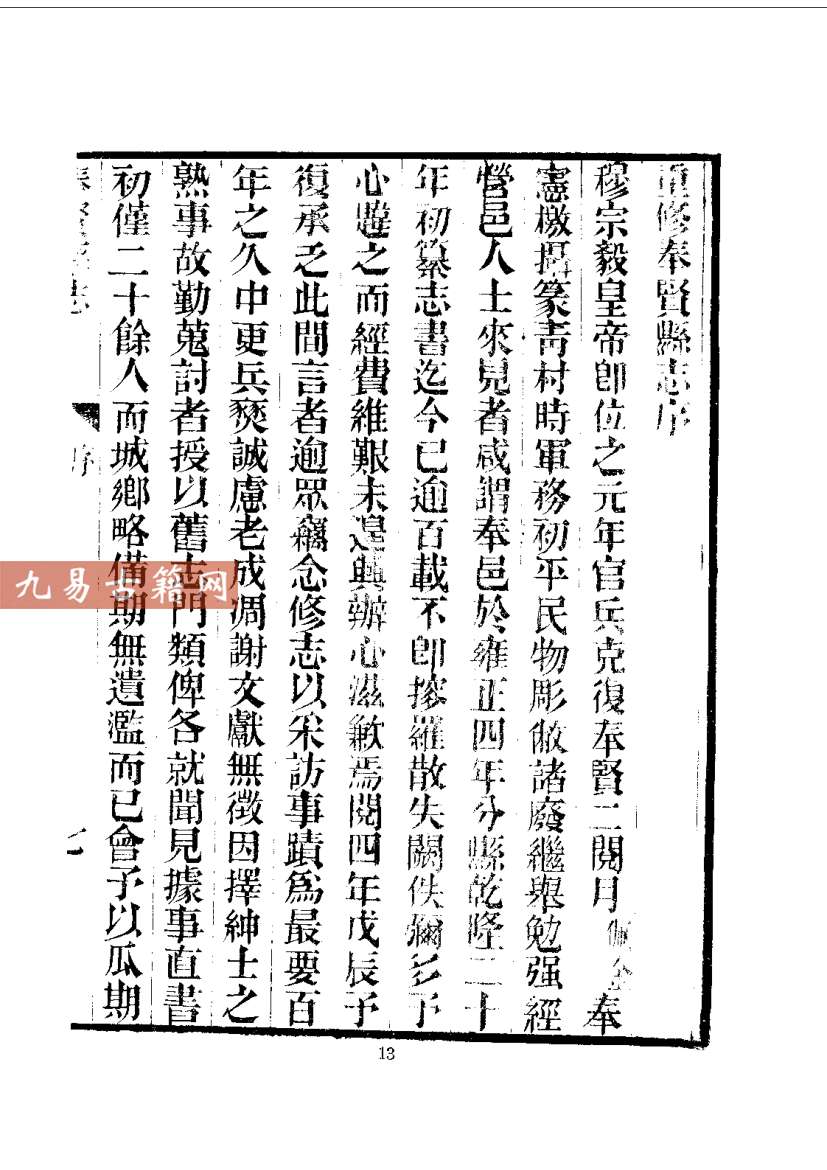 重修奉賢縣志序
穆宗毅皇帝卽位之元年官兵克復奉賢二閱月佩金奉
憲檄攝篆靑村時軍務初平民物彫敝諸廢繼舉勉强經
營邑人士來見者咸謂奉邑於雍正四年分縣乾隆二十
年初纂志書迄今已逾百載不卽搜羅散失闕佚彌多予
心韙之而經費維艱未遑興辦心滋歉焉閱四年戊辰予
復承乏此間言者逾眾竊念修志以采訪事蹟爲最要百
年之久中更兵燹誠慮老成凋謝文獻無徵因擇紳士之
熟事故勤蒐討者授以舊志門類俾各就聞見據事直書
初僅二十餘人而城鄉略備期無遺濫而已會予以瓜期
奉賢縣志
序
七
九易古籍网
13